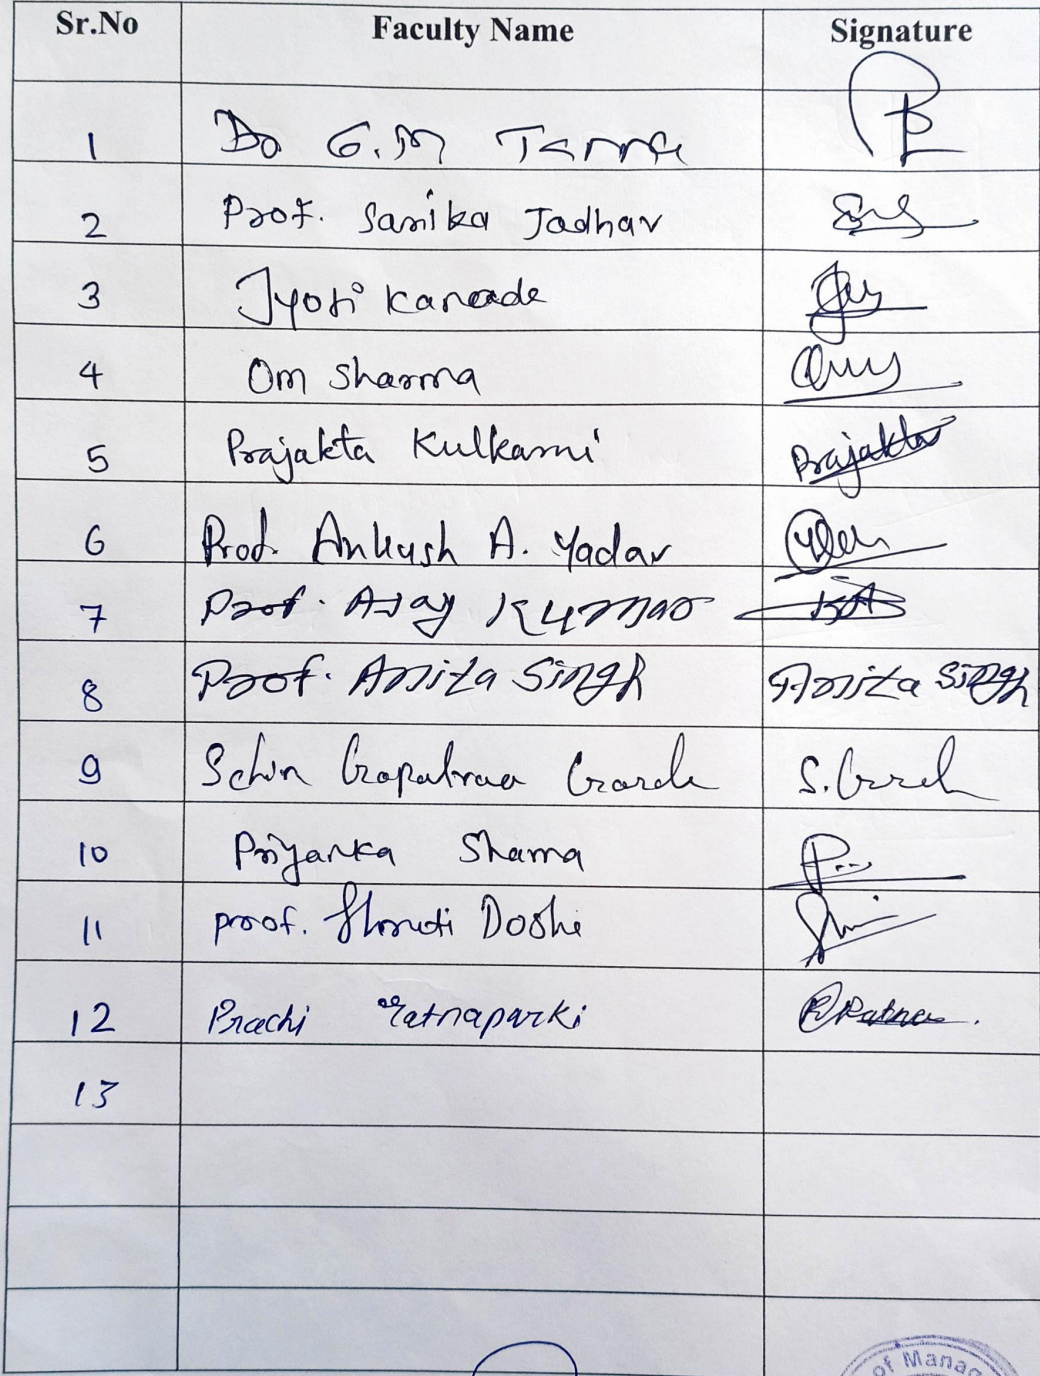 Sr.No Faculty Name Signature
1 Do G.M
2 Prof. Sanika Jadhav
3 Jyoti Kanade
4 Om Sharma
5 Prajakta Kulkarni Prajakta
6 Prof. Ankush A. Yadav
7 Prof. Ajay Kumar
8 Prof. Anita Singh Anita Singh
9 Schin Gopalrao Garde S.
10 Priyanka Sharma
11 proof. Shruti Doshi
12 Prachi ratnaparki
13
of Manag